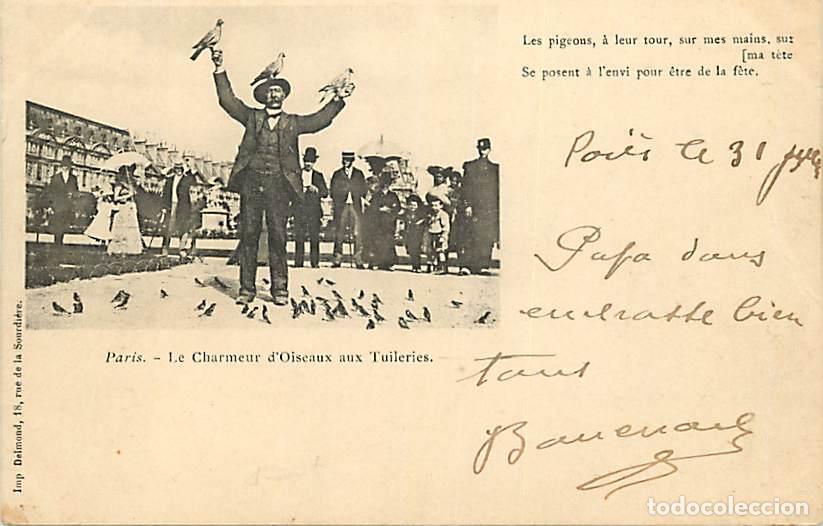 Les pigeons, à leur tour, sur mes mains, sur
[ma tête
Se posent à l'envi pour être de la fête.
le 31
Papa dans
embrasse bien
tous
Paris. - Le Charmeur d'Oiseaux aux Tuileries.
Imp Delmond, 18, rue de la Sourdière.
todocoleccion